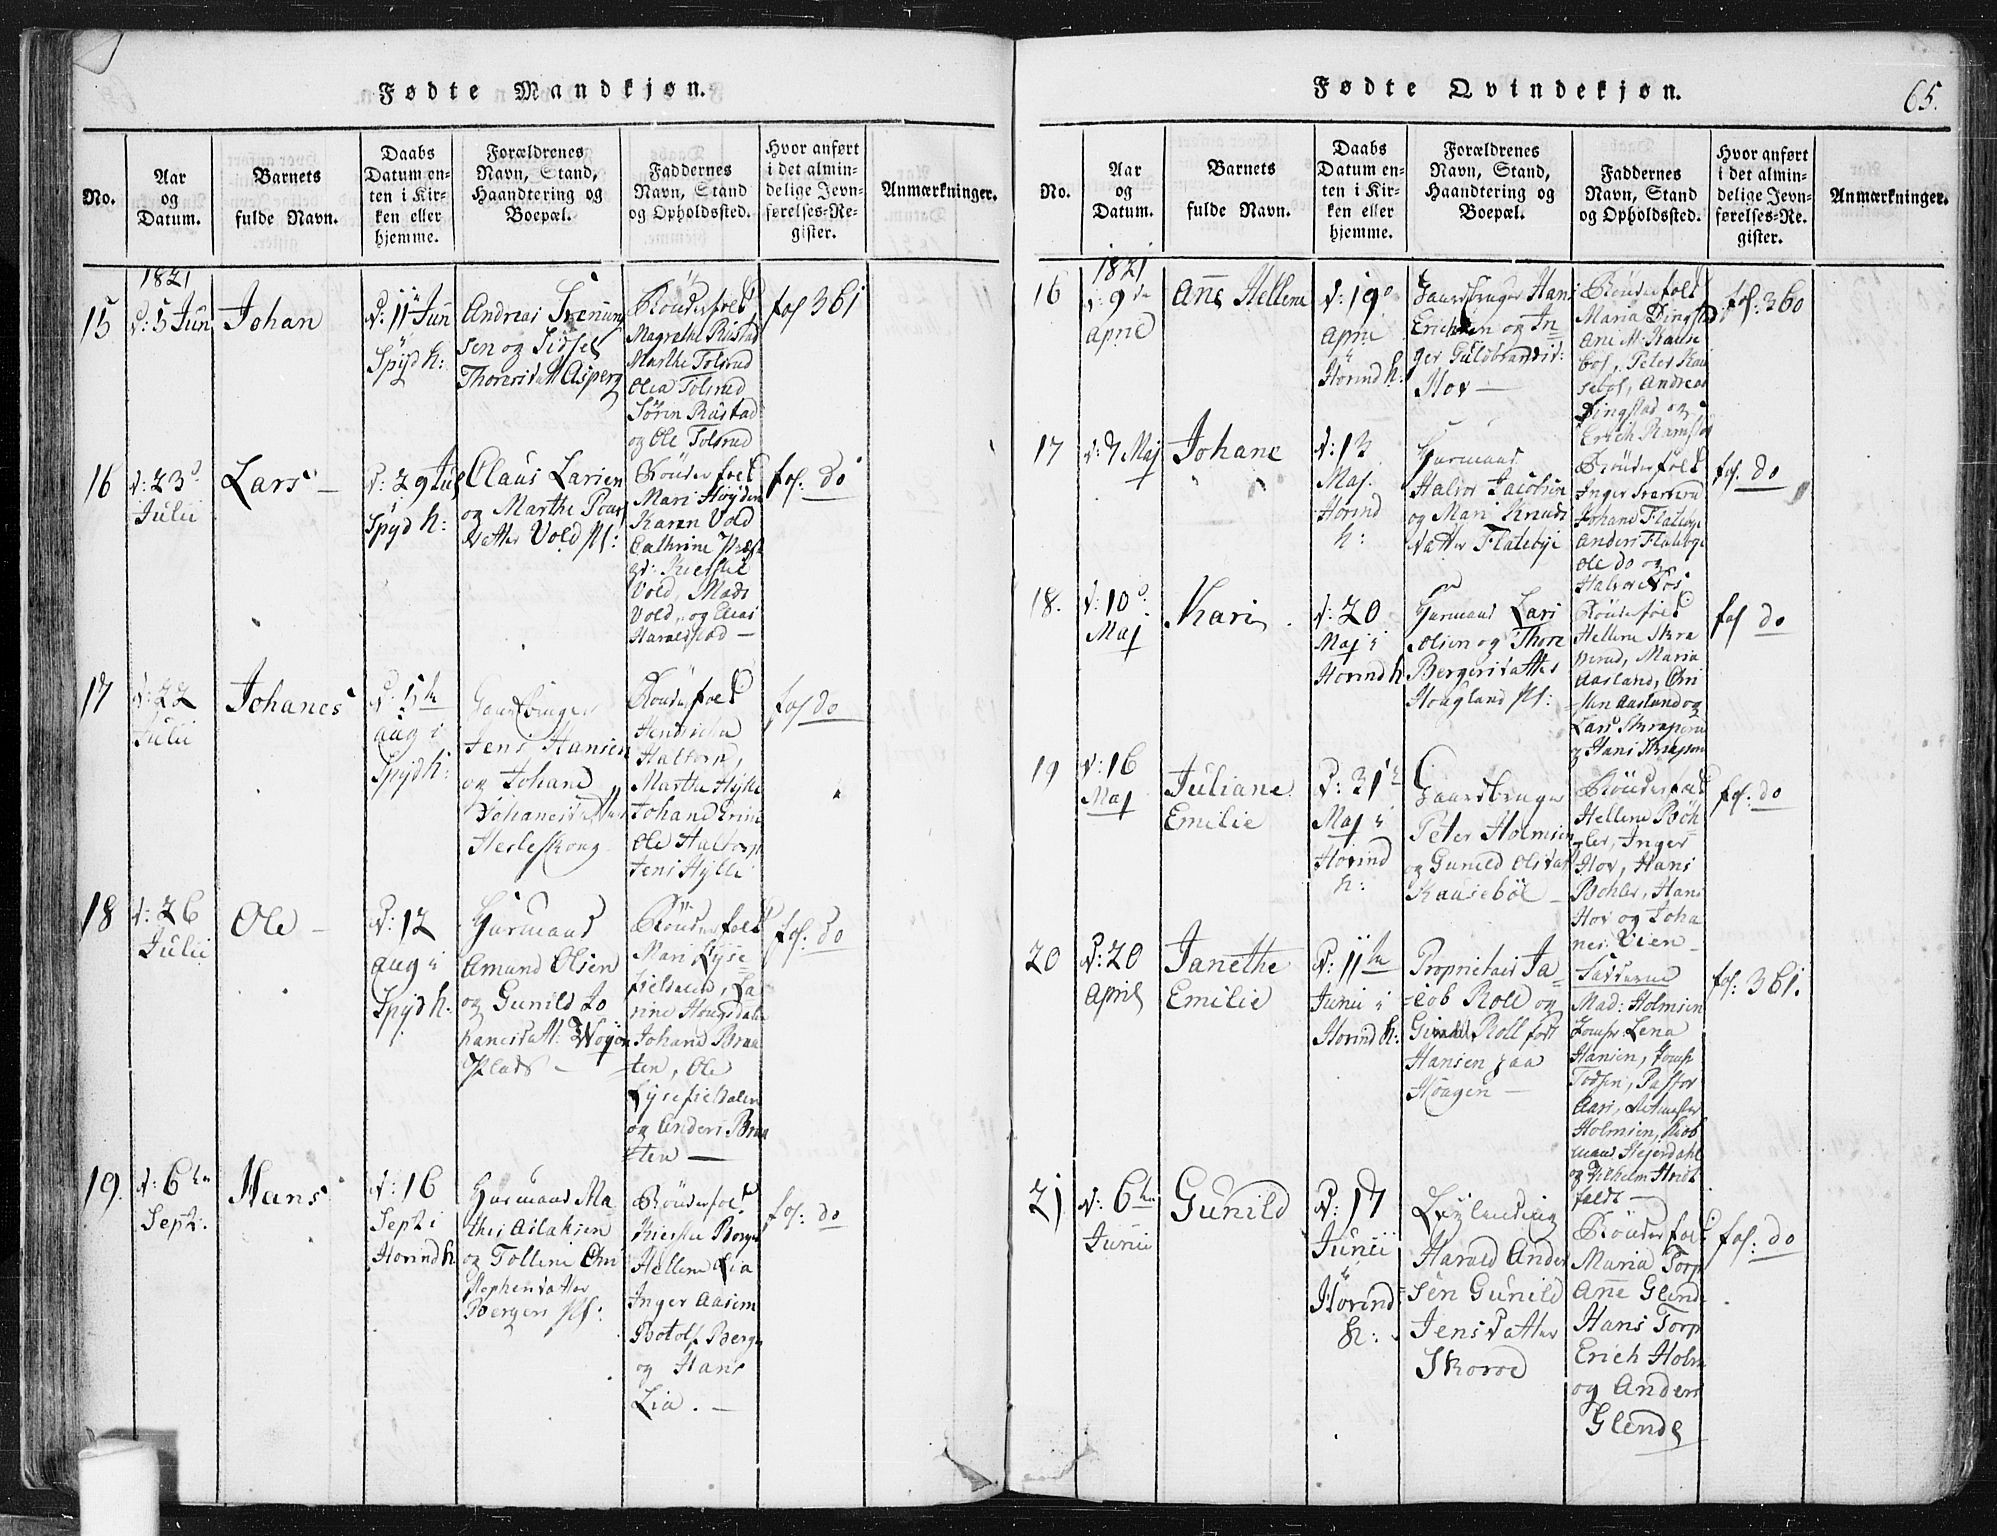 Fødte Mandkjøn.
No.
Aar
og
Datum.
Barnets
fulde Navn.
Daabs
Datum en-
ten i Kir-
ken eller
hjemme.
Forældrenes
Navn, Stand,
Haandtering og
Boepæl.
Faddernes
Navn, Stand
og Opholdssted.
Hvor anført
i det almin-
delige Jevn-
førelses-Re-
gister.
Anmærkninger.
1821
15
d: 5 Jun
Johan
d: 11 Jun
i
Spyd k:
Andreas
sen og Sidsel
Thoresdatt Asperg
Bønderfolk
Magrethe Rustad
Marthe Tolsrud
Olea Tolsrud
Sörin Rustad
og Ole Tolsrud
fol 361
16
d: 23d
Julii
Lars –
d: 29 Jul
i
Spyd k:
Claus Larsen
og Marthe
datter Vold Pl:
Bønderfolk
Mari Høyden
Karen Vold
Cathrine
Vold, Mads
Vold, og
Haraldstad –
fol: do
17
d: 22
Julii
Johanes
d: 5te
aug i
Spyd k:
Gaardbruger
Jens Hansen
og Johane
Johanesdatter
Hesleskoug
Bønderfolk
Haltorp,
Marthe Hylle
Ole Haltorp
Jens Hylle
fol do
18
d: 26
Julii
Ole –
d: 12
aug i
Spyd k:
Huusmand
Amund Olsen
og Gunild Jo
hanesdatt:
Plads –
Bønderfolk
Mari Lyse
Johane Braa
ten, Ole
Lysefieldalen
og Anders Braa
ten –
fol: do
19.
d: 6te
Septr.
Hans
d: 16
Sept i
Hovind k
Huusmand Ma
thes Aslaksen
og Tolline Chri
stophersdatter
Bergers Pl:
Bønderfolk
Kirstie Berger
Hellene Lia
Inger Aasem
Botolf Berger
og Hans
Lia. –
fol: do
Fødte Qvindekjøn.
65.
No.
Aar
og
Datum.
Barnets
fulde Navn.
Daabs
Datum en-
ten i Kir-
ken eller
hjemme.
Forældrenes
Navn, Stand,
Haandtering og
Boepæl.
Faddernes
Navn, Stand
og Opholdssted.
Hvor anført
i det almin-
delige Jevn-
førelses-Re-
gister.
Anmærkninger.
1821
16
d: 9de
April
Ane Hellene
d: 19
April
i
Hovind k:
Gaardbruger Hans
Erichsen og In
ger Guldbrandsd:
Hov –
Bønderfolk
Maria Dingstad
Ane M. Kause
bøl, Peter Kau
sebøl, Andreas
Dingstad og
Erich Ramstad
fol: 360
17
d: 7 Maj
Johane
d: 13
Maj.
Hovind
k:
Huusmand
Halvor Jacobsen
og Mari Knuds
datter Flatebye
Bønderfolk
Inger
Johane Flatebye
Anders Flatebye
Ole do og
Halvor
fol: do
18.
d: 10d
Maj
Kari
d: 20
Maj i
Hovind k
Huusmand Lars
Olsen og Thore
Bergersdatter
Hougland Pl:
Bønderfolk
Hellene Skra
perud, Maria
Aasland, Chri
stian Aaslund og
Lars Skraperud
og Hans Skraperu
fol do
19
d: 16
Maj
Juliane
Emilie
d: 31te
Maj i
Hovind
k:
Gaardbruger
Peter Holmsen
og Gunild Olsdat
Kausebøl –
Bønderfolk
Hellene Bøh
ler, Inger
Hov, Hans
Bøhler, Hans
Hov og Joha
nes Vien –
fol: do
20
d: 20
April
Janethe
Emilie
d: 11te
Junii i
Hovind k:
Proprietair Ja
cob Roll og
Roll født
Hansen paa
Hougen –
Fadderne
Mad: Holmsen
Jomfr Lena
Hansen, Jomfr
Pastor
Aars,
Holmsen,
Heyerdahl
og Vilhelm
feldt –
fol: 361.
21
d: 6te
Junii
Gunild
d: 17
Junii
i
Hovind
k:
Leylænding
Harald Ander
sen Gunild
Jensdatter
Skoroe
Bønderfolk
Maria Torp
Ane Glende
Hans Torp
Erich Holm
og Anders
Glende
fol: do